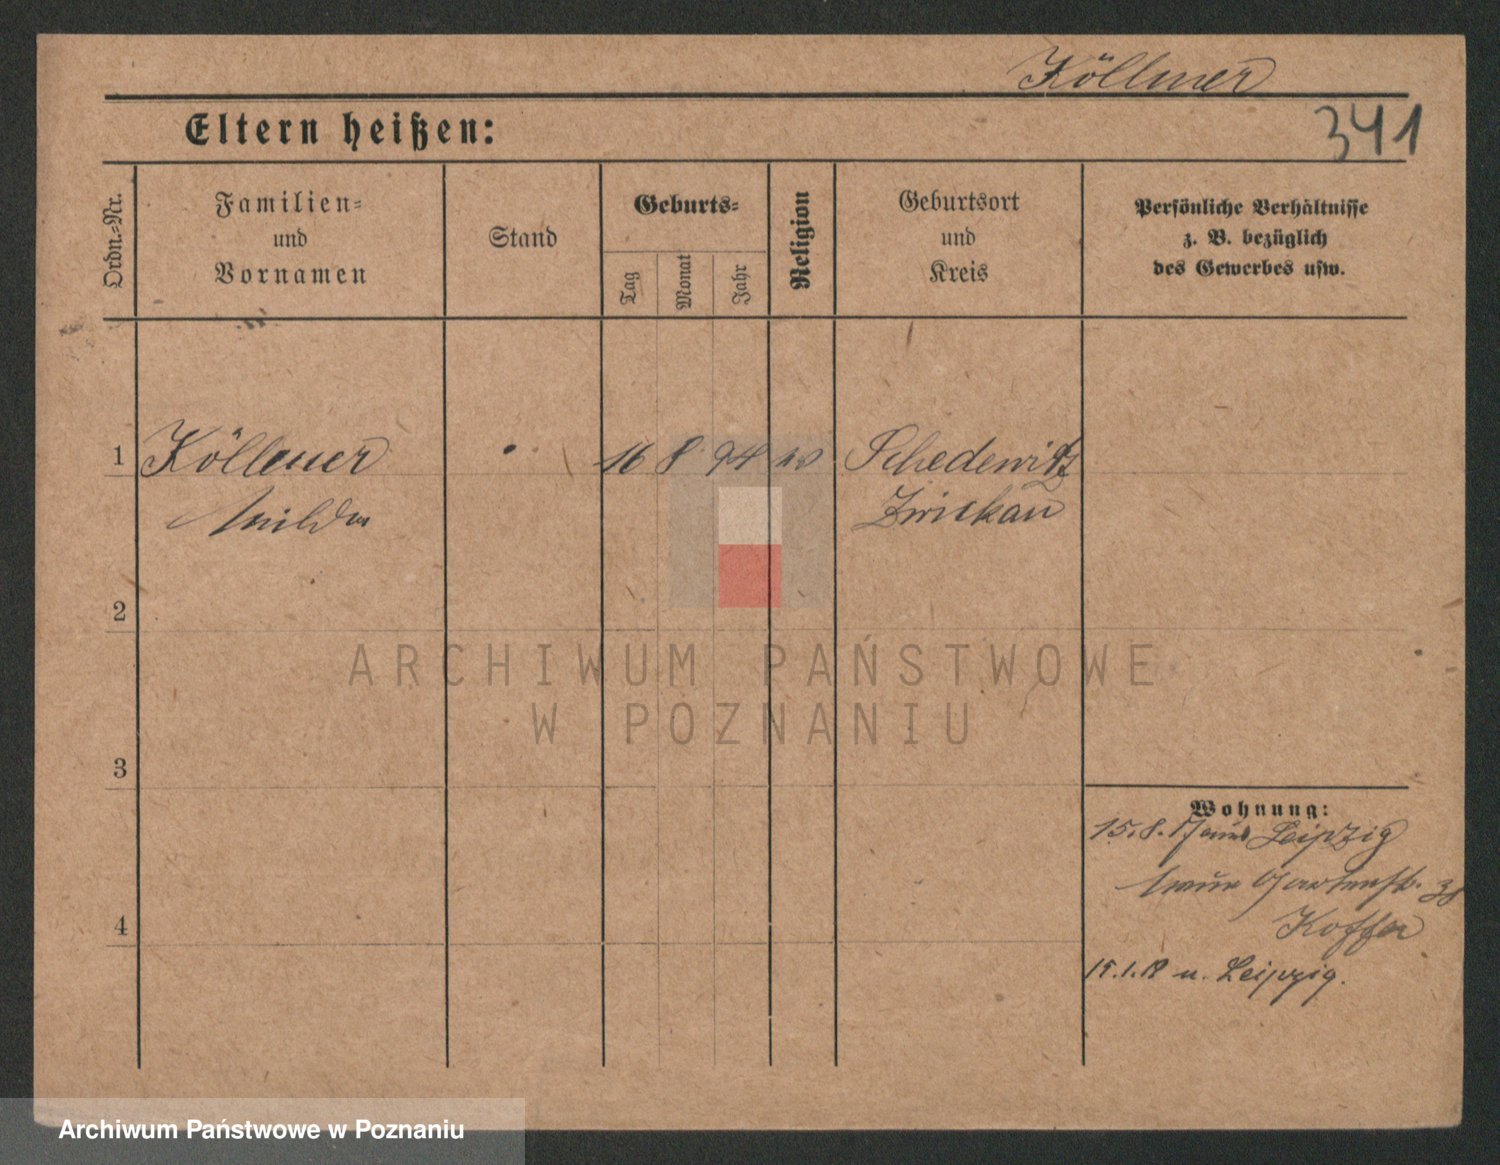 Köllmer
341
Eltern heißen:
Ordn.=Nr.
Familien=
und
Vornamen
Stand
Geburts=
Tag
Monat
Jahr
Religion
Geburtsort
und
Kreis
Persönliche Verhältnisse
z. B. bezüglich
des Gewerbes usw.
1 Köllmer 16 8 94 Schedewitz
Milda Zwickau
2
3
4
Wohnung:
15.8.17 Leipzig
Gartenstr.
Koffer
15.1.18 n. Leipzig.
ARCHIWUM PAŃSTWOWE
W POZNANIU
Archiwum Państwowe w Poznaniu